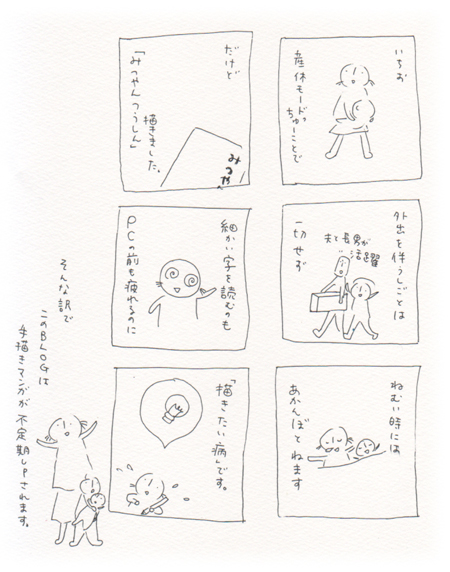 いちお
産休モードっ
ちゅーことで
外出を伴うしごとは
夫と長男が
活躍
一切せず
ねむい時には
あかんぼとねます
だけど
描きました。
「みつやんつうしん」
みつや
細かい字を読むのも
PCの前も疲れるのに
「描きたい病」です。
そんな訳で
このBLOGは
手描きマンガが不定期UPされます。